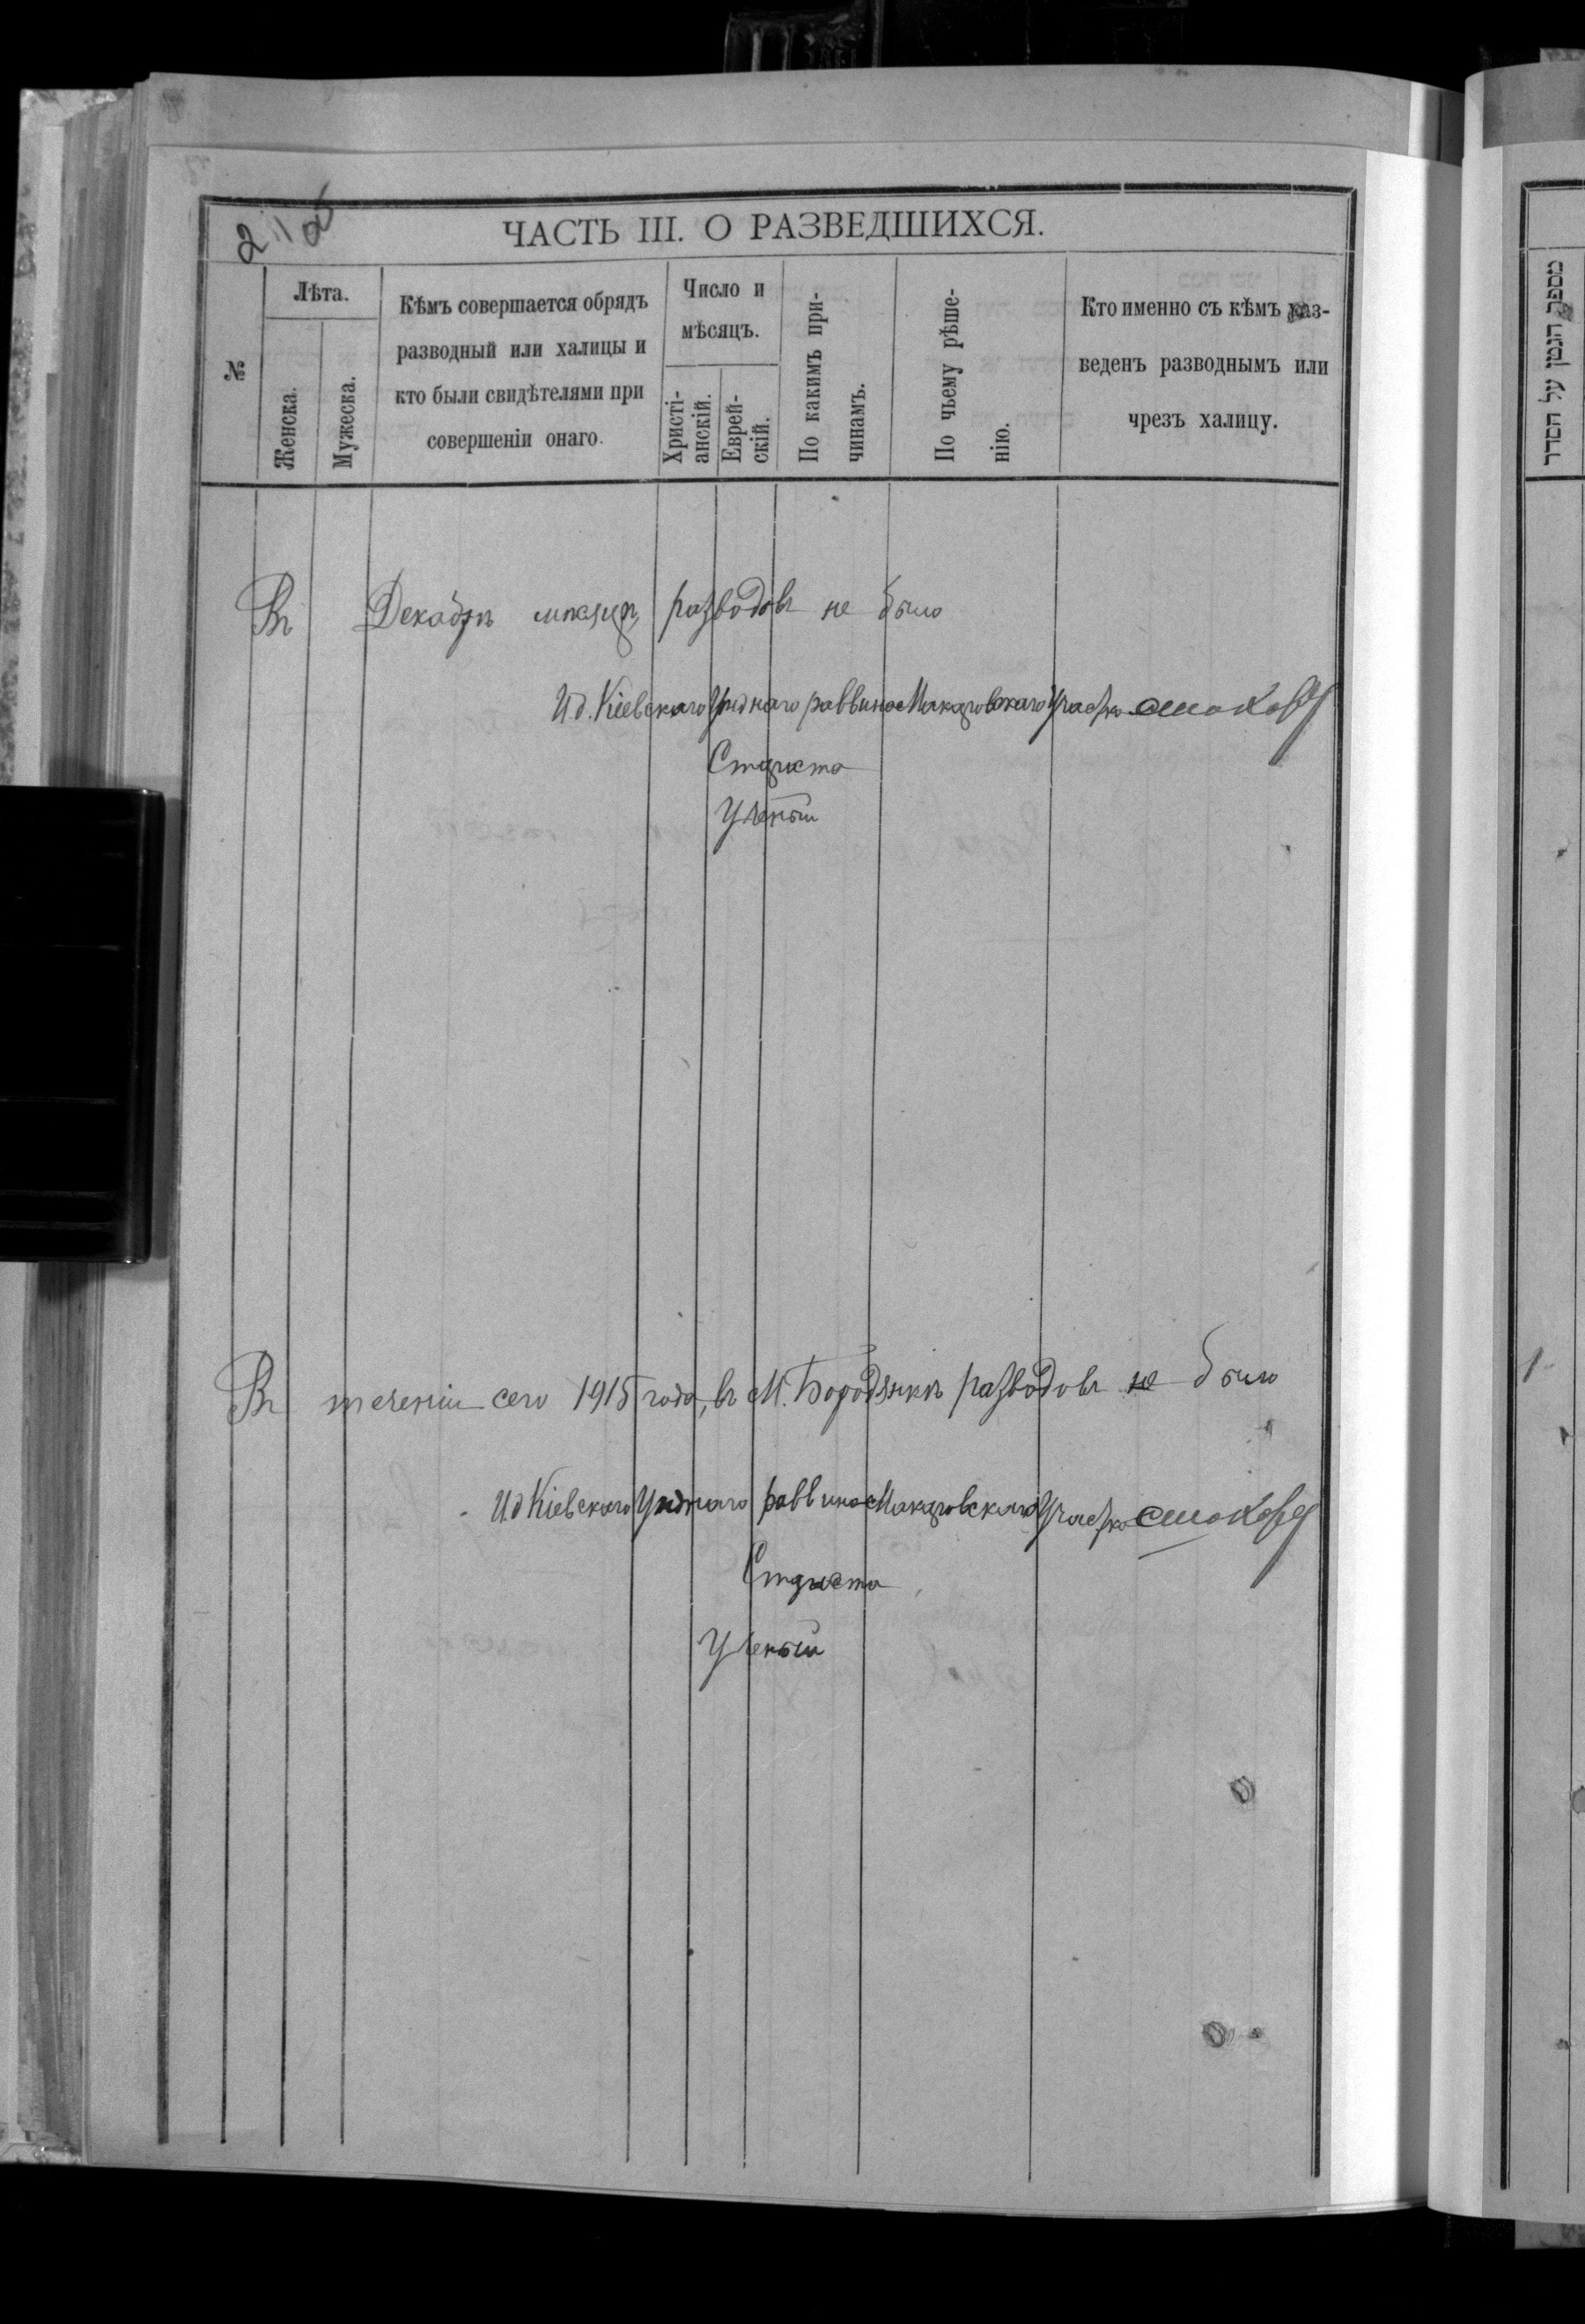 ЧАСТЬ III. О РАЗВЕДШИХСЯ.
№
Лѣта.
Женска.
Мужеска.
Кѣмъ совершается обрядъ
разводный или халицы и
кто были свидѣтелями при
совершеніи онаго.
Число и
мѣсяцъ.
Христі-
анскій.
Еврей-
скій.
По какимъ при-
чинамъ.
По чьему рѣше-
нію.
Кто именно съ кѣмъ раз-
веденъ разводнымъ или
чрезъ халицу.
Въ Декабрѣ мѣсяцѣ разводовъ не было
И.д. Кіевскаго Уѣзднаго раввина Макаровскаго Участка
Староста
Ученый
Въ теченіи сего 1915 года, въ М. Бородянкѣ разводовъ не было
И.д Кіевскаго Уѣзднаго раввина Макаровскаго Участка
Староста
Ученый
מספר הנמן על הסדר